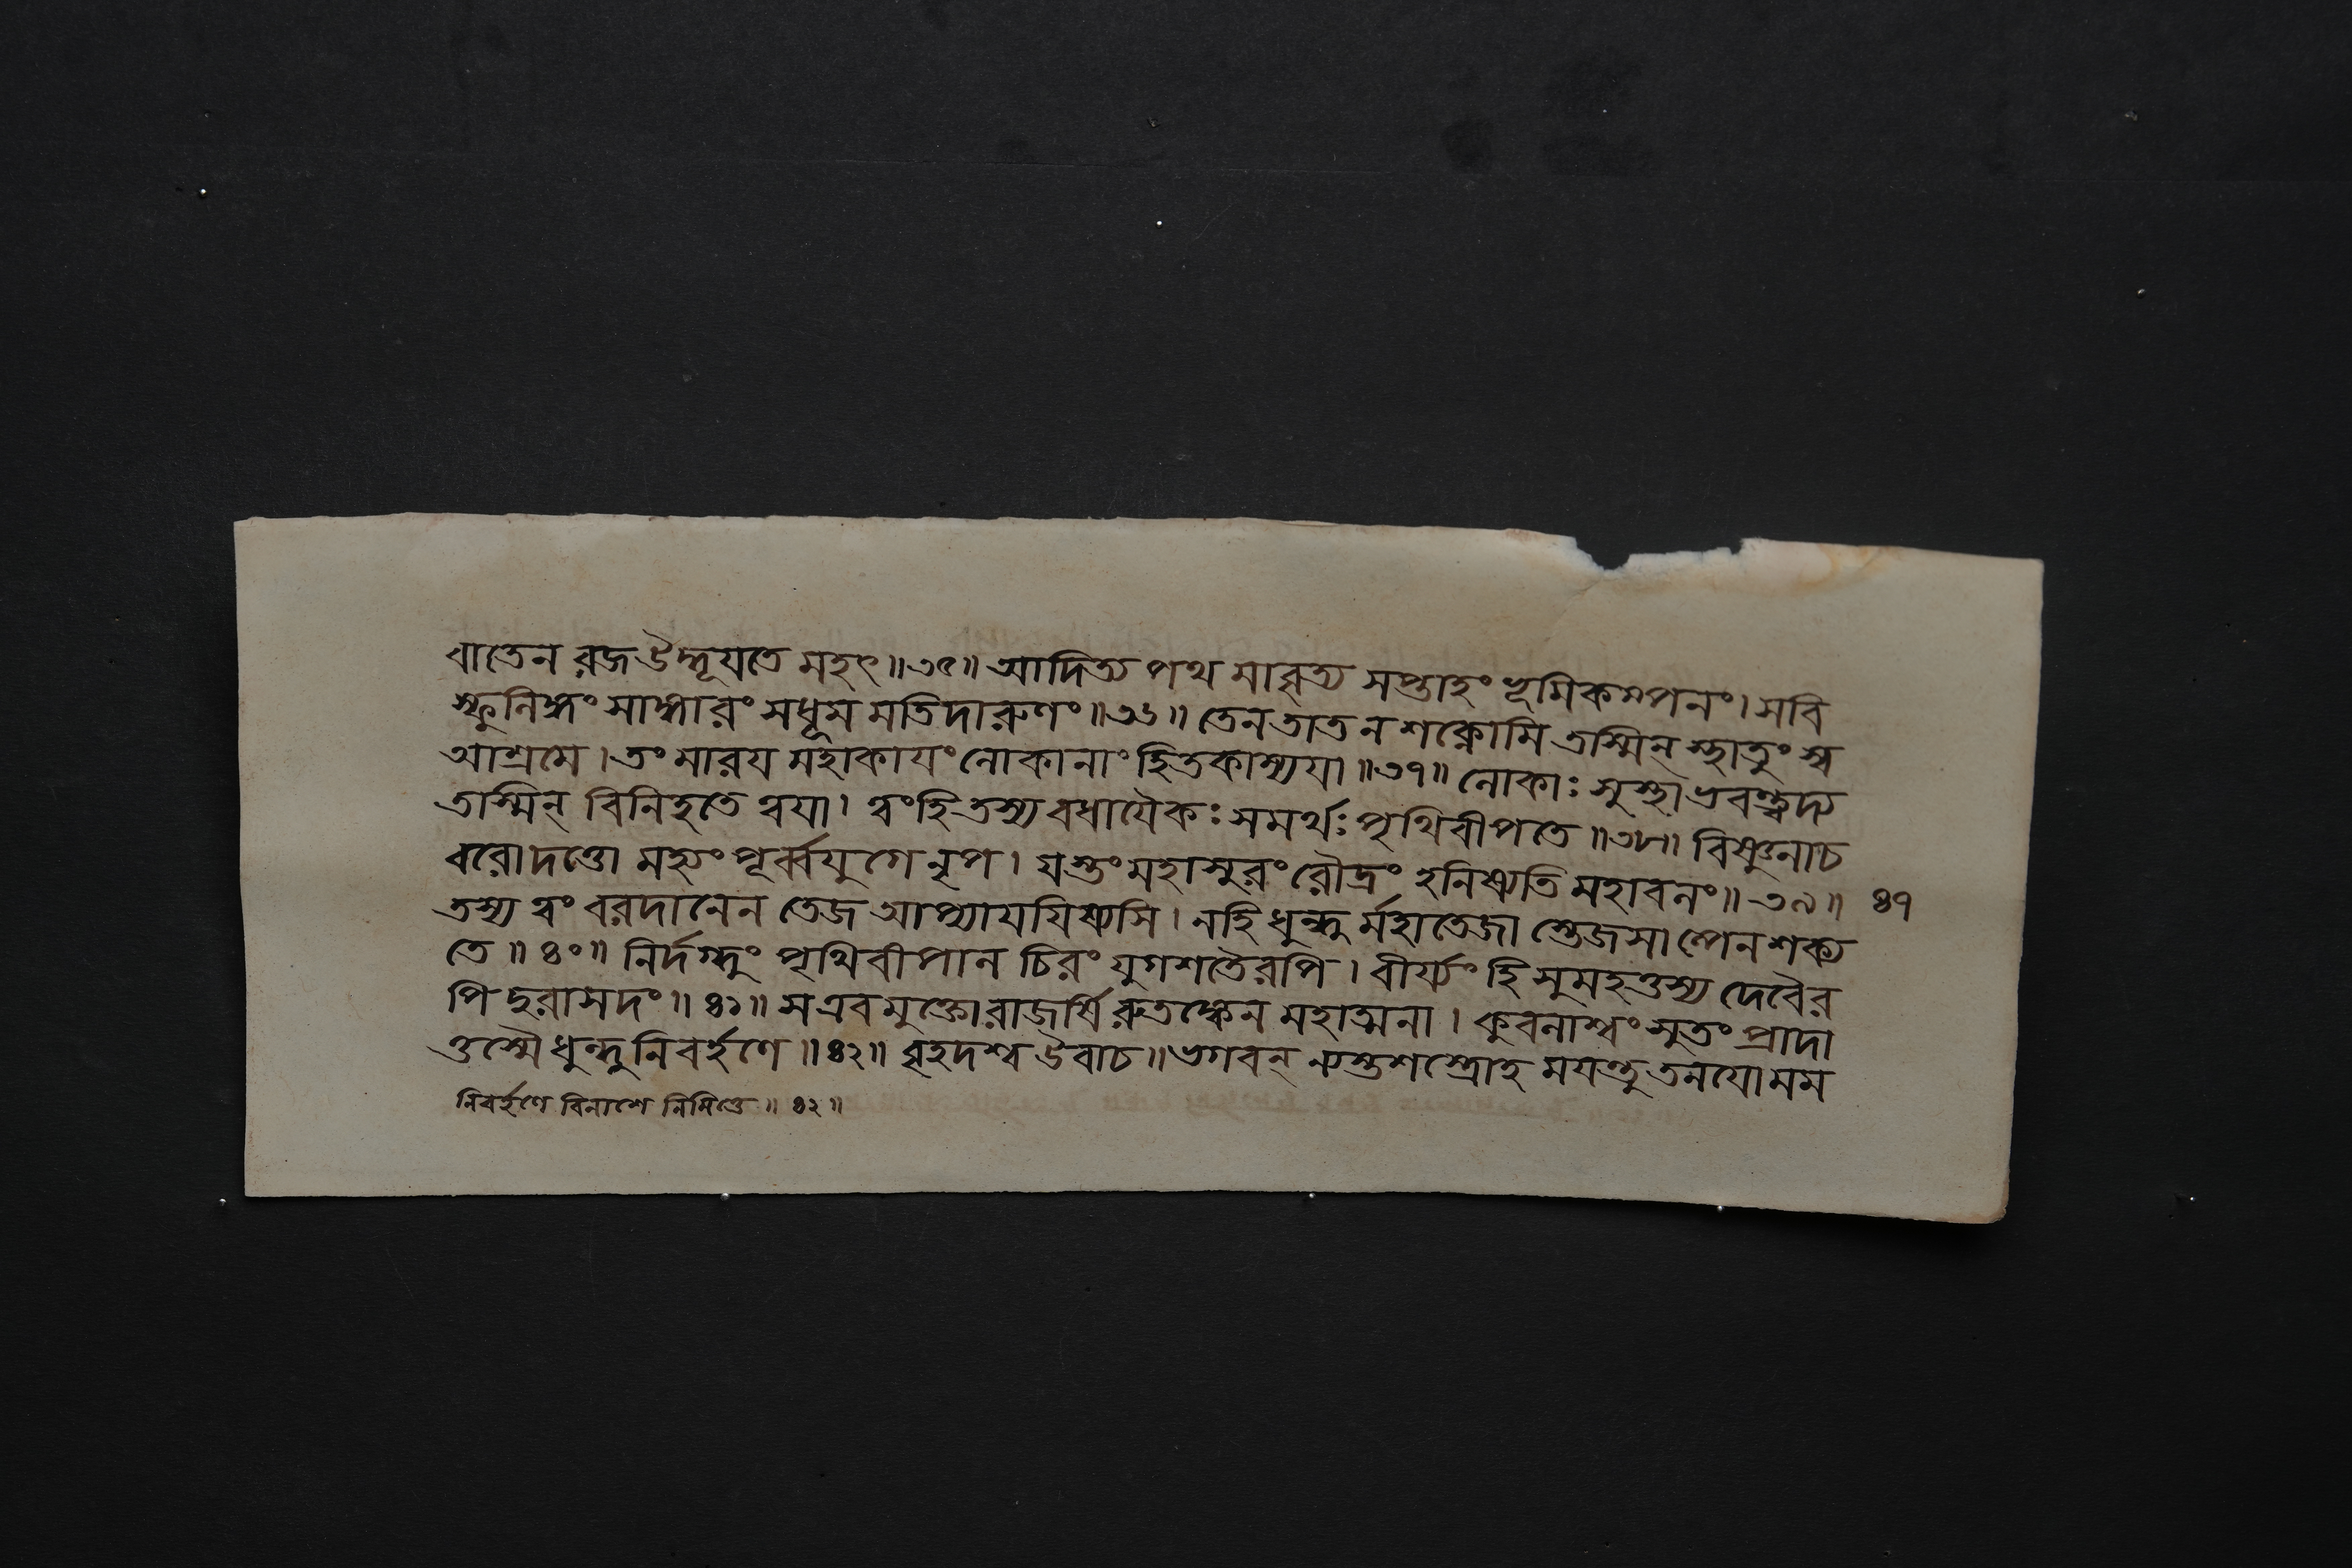 বাতেন রজ উদ্ধূযতে মহৎ॥৩৫॥ আদিত্য পথ মাবৃত্য সপ্তাহং ভূমিকম্পনং। সবি
স্ফুলিঙ্গং সাঙ্গারং সধূম মতিদারুণং॥৩৬॥ তেন তাত ন শক্নোমি তস্মিন্ স্থাতুং স্ব
আশ্রমে। তং মারয মহাকাযং লোকানাং হিতকাম্যযা॥৩৭॥ লোকাঃ সুস্থা ভবন্ত্বদ্য
তস্মিন্ বিনিহতে ত্বযা। ত্বং হি তস্য বধাযৈকঃ সমর্থঃ পৃথিবীপতে॥৩৮॥ বিষ্ণুনাচ
বরোদত্তো মহ্যং পূর্ব্বযুগে নৃপ। যস্তং মহাসুরং রৌদ্রং হনিষ্যতি মহাবলং॥৩৯॥ ৪৭
তস্য ত্বং বরদানেন তেজ আপ্যাযযিষ্যসি। নহি ধুন্ধু র্মহাতেজা স্তেজসাল্পেন শক্য
তে॥৪০॥ নির্দগ্ধুং পৃথিবীপাল চিরং যুগশতৈরপি। বীর্য্যং হি সুমহত্তস্য দেবৈর
পি দুরাসদং॥৪১॥ স এবমুক্তো রাজর্ষি রুতঙ্কেন মহাত্মনা। কুবলাশ্বং সুতং প্রাদা
ত্তস্মৈ ধুন্ধুনিবর্হণে॥৪২॥ বৃহদশ্ব উবাচ॥ ভগবন্ ন্যস্তশস্ত্রোহ মযন্তু তনযো মম
নিবর্হণে বিনাশে নিমিত্তে॥৪২॥